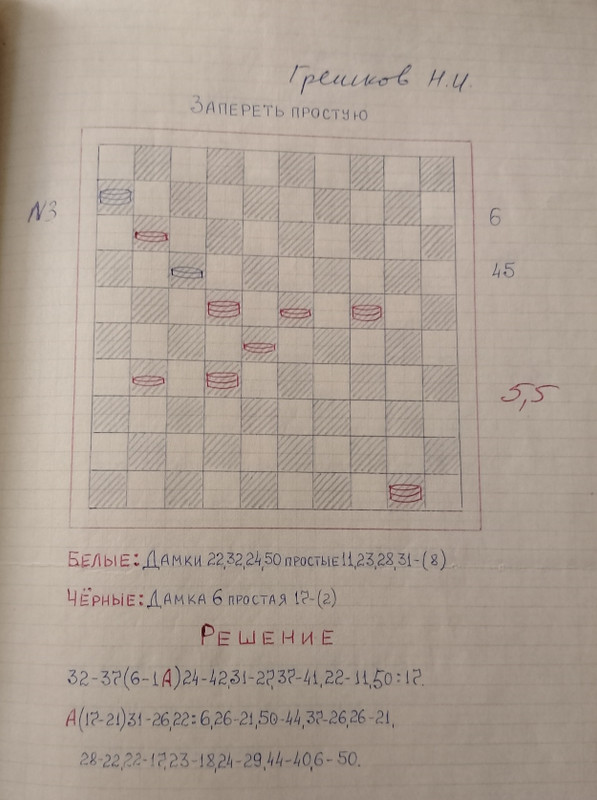 Грешков Н.И.
ЗАПЕРЕТЬ ПРОСТУЮ
N3
6
45
5,5
БЕЛЫЕ: ДАМКИ 22,32,24,50 ПРОСТЫЕ 11,23,28,31-(8)
ЧЁРНЫЕ: ДАМКА 6 ПРОСТАЯ 17-(2)
РЕШЕНИЕ
32-37(6-1А)24-42,31-27,37-41,22-11,50:17.
А(17-21)31-26,22:6,26-21,50-44,37-26,26-21,
28-22,22-17,23-18,24-29,44-40,6-50.